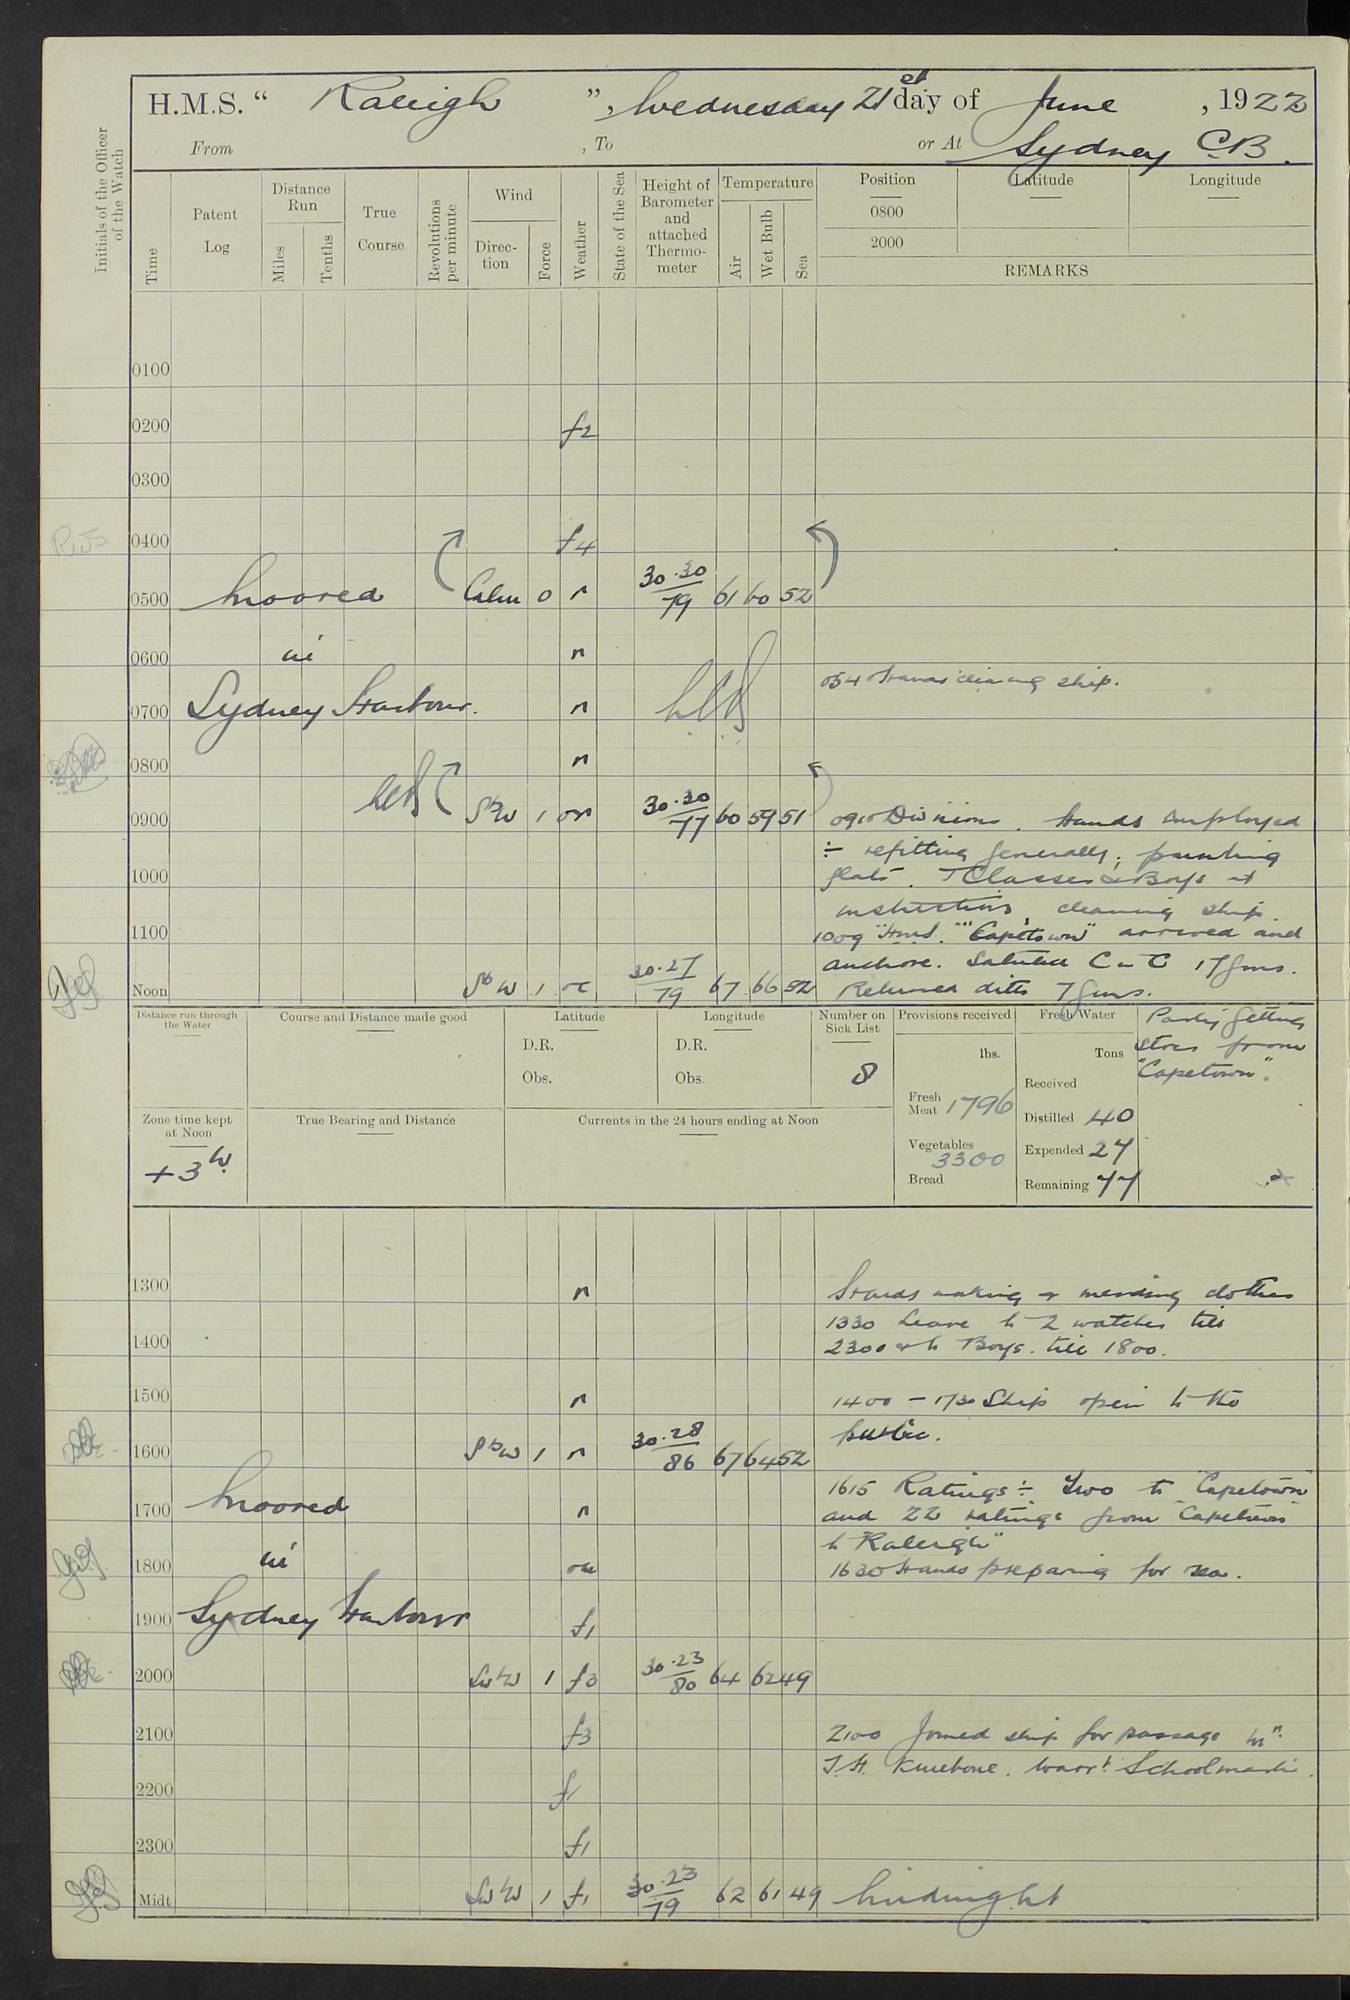 H.M.S. " Raleigh ", Wednesday 21st day of June , 1922
From , To or At Sydney C.B.
Initials of the Officer of the Watch
Time
Patent Log
Distance Run
Miles
Tenths
True Course
Revolutions per minute
Wind
Direction
Force
Weather
State of the Sea
Height of Barometer and attached Thermometer
Temperature
Air
Wet Bulb
Sea
Position Latitude Longitude
0800
2000
REMARKS
0100
0200 f2
0300
0400 f4
0500 Moored Calm 0 n 30.30/79 61 60 52
0600 in n
0540 Hands cleaning ship.
0700 Sydney Harbour. n
0800 n
0900 SbW 1 on 30.30/77 60 59 51 0910 Divisions. Hands employed
÷ refitting generally; painting
1000 flats. T Classes & Boys at
instructions, cleaning ship.
1100 1009 "H.M.S." "Capetown" arrived and
anchore. Saluted C in C 17 guns.
Noon SbW 1 oc 30.27/79 67 66 52 Returned ditto 7 guns.
Distance run through the Water
Course and Distance made good
Latitude
D.R.
Obs.
Longitude
D.R.
Obs.
Number on Sick List
8
Provisions received
lbs.
Fresh Meat 1796
Vegetables 3300
Bread
Fresh Water
Tons
Received
Distilled 40
Expended 27
Remaining 77
Party getting
stores from
"Capetown".
Zone time kept at Noon
+3h.
True Bearing and Distance
Currents in the 24 hours ending at Noon
1300 n Hands making & mending clothes
1330 Leave to 2 watches till
1400 2300 & to Boys. till 1800.
1500 n 1400 - 1730 Ship open to the
public.
1600 SbW 1 n 30.28/86 67 64 52
1615 Ratings ÷ Two to "Capetown"
1700 Moored n and 22 ratings from "Capetown"
to "Raleigh"
1800 in 1630 Hands preparing for sea.
1900 Sydney Harbour f1
2000 SWbW 1 f3 30.23/80 64 62 49
2100 f3 2100 Joined ship for passage Mr.
J.H. Kinebone. Warrt. Schoolmaster.
2200 f1
2300 f1
Midt SWbW 1 f1 30.23/79 62 61 49 Midnight